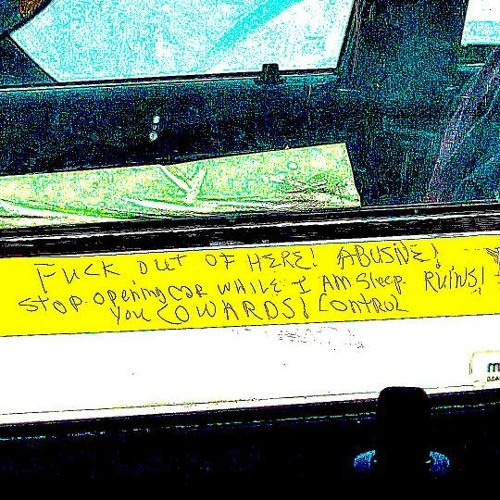 FUCK OUT OF HERE! ABUSIVE!
STOP. opening car WHILE I AM Sleep. RUINS!
You COWARDS! CONTROL